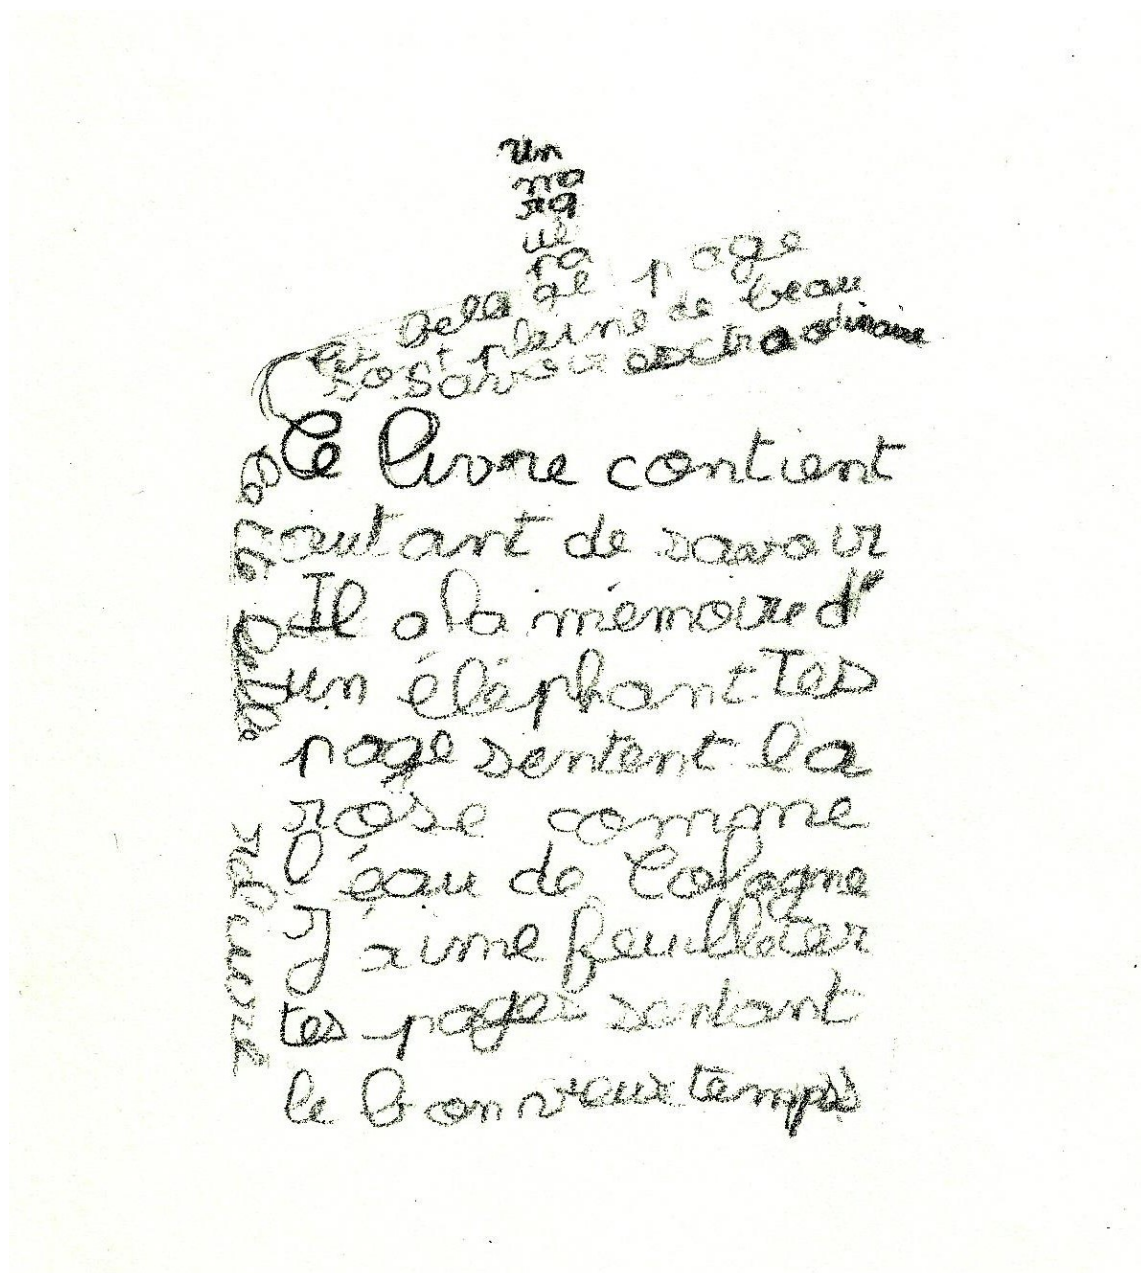 Un
ma
rq
ue
pa
ge
les belle page
sont pleine de beau
savoir extraodinaire
Ce livre contient
autant de savoir
Il a la mémoire d'
un éléphant Tes
page sentent la
rose comme
l'éau de Cologne
J'aime feuilleter
tes pages sentant
le bon vieux temps
De la belle
reliure